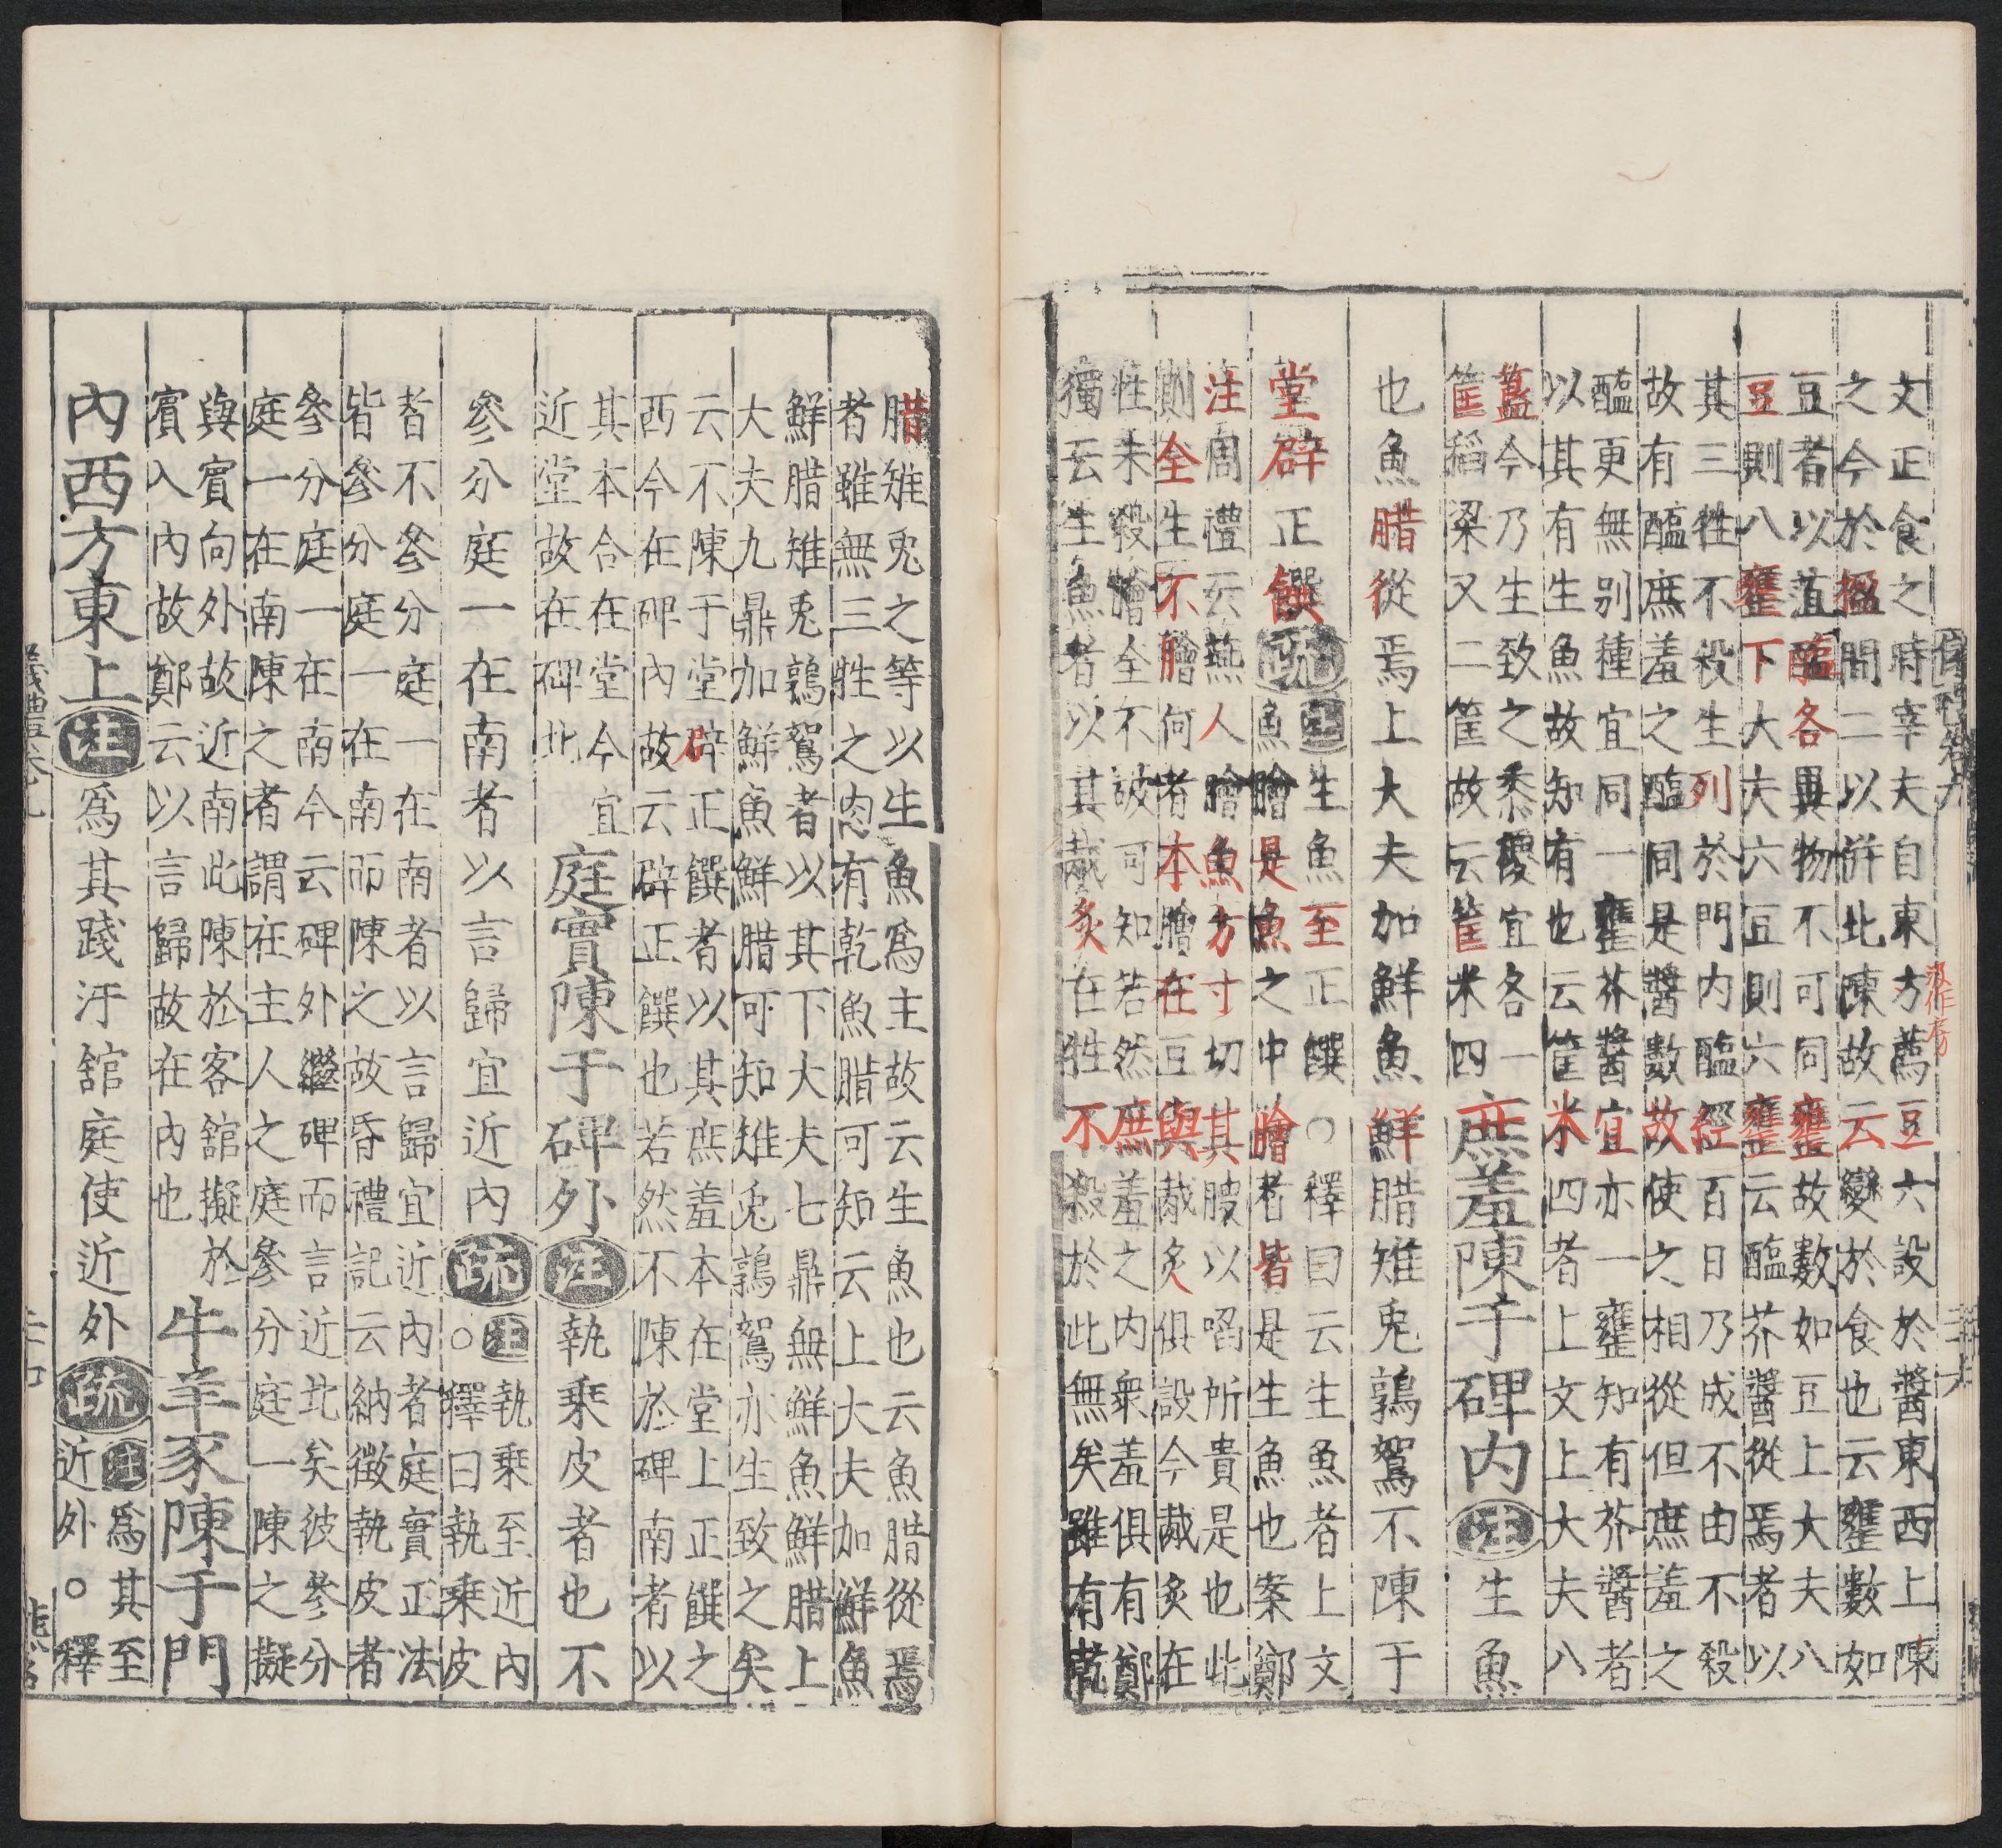 文正食之時宰夫自東方薦豆六設於醬東西上陳
之今於楹間二以併北陳故云變於食也云甕數如
豆者以葅醢各異物不可同甕故數如豆上大夫八
豆則八甕下大夫六豆則六甕云醢芥醬從焉者以
其三牲不殺生列於門内醢經百日乃成不由不殺
故有醢庶羞之醢同是醬數故使之相從但庶羞之
醢更無别種宜同一甕芥醬宜亦一甕知有芥醬者
以其有生魚故知有也云筐米四者上文上大夫八
簋今乃生致之黍稷宜各一
筐稻粱又二筐故云筐米四
庶羞陳于碑内注生魚
也魚腊從焉上大夫加鮮魚鮮腊雉兎鶉鴽不陳于
堂辟正饌疏
注生魚至正饌○釋曰云生魚者上文
魚膾是魚之中膾者皆是生魚也案鄭
注周禮云燕人膾魚方寸切其腴以啗所貴是也此
則全生不膾何者本膾在豆與胾炙俱設今胾炙在
牲未殺膾全不破可知若然庶羞之内衆羞俱有鄭
獨云生魚者以其胾炙在牲不殺於此無矣雖有乾
腊雉兎之等以生魚爲主故云生魚也云魚腊從焉
者雖無三牲之肉有乾魚腊可知云上大夫加鮮魚
鮮腊雉兎鶉鴽者以其下大夫七鼎無鮮魚鮮腊上
大夫九鼎加鮮魚鮮腊可知雉兎鶉鴽亦生致之矣
云不陳于堂辟正饌者以其庶羞本在堂上正饌之
西今在碑内故云辟正饌也若然不陳於碑南者以
其本合在堂今宜
近堂故在碑北
庭實陳于碑外注執乗皮者也不
參分庭一在南者以言歸宜近内疏
注執乗至近内
○釋曰執乗皮
者不參分庭一在南者以言歸宜近内者庭實正法
皆參分庭一在南而陳之故昏禮記云納徵執皮者
參分庭一在南今云碑外繼碑而言近北矣彼參分
庭一在南陳之者謂在主人之庭參分庭一陳之擬
與賓向外故近南此陳於客舘擬於
賓入内故鄭云以言歸故在内也
牛羊豕陳于門
内西方東上注爲其踐汙舘庭使近外疏
注爲其至
近外○釋